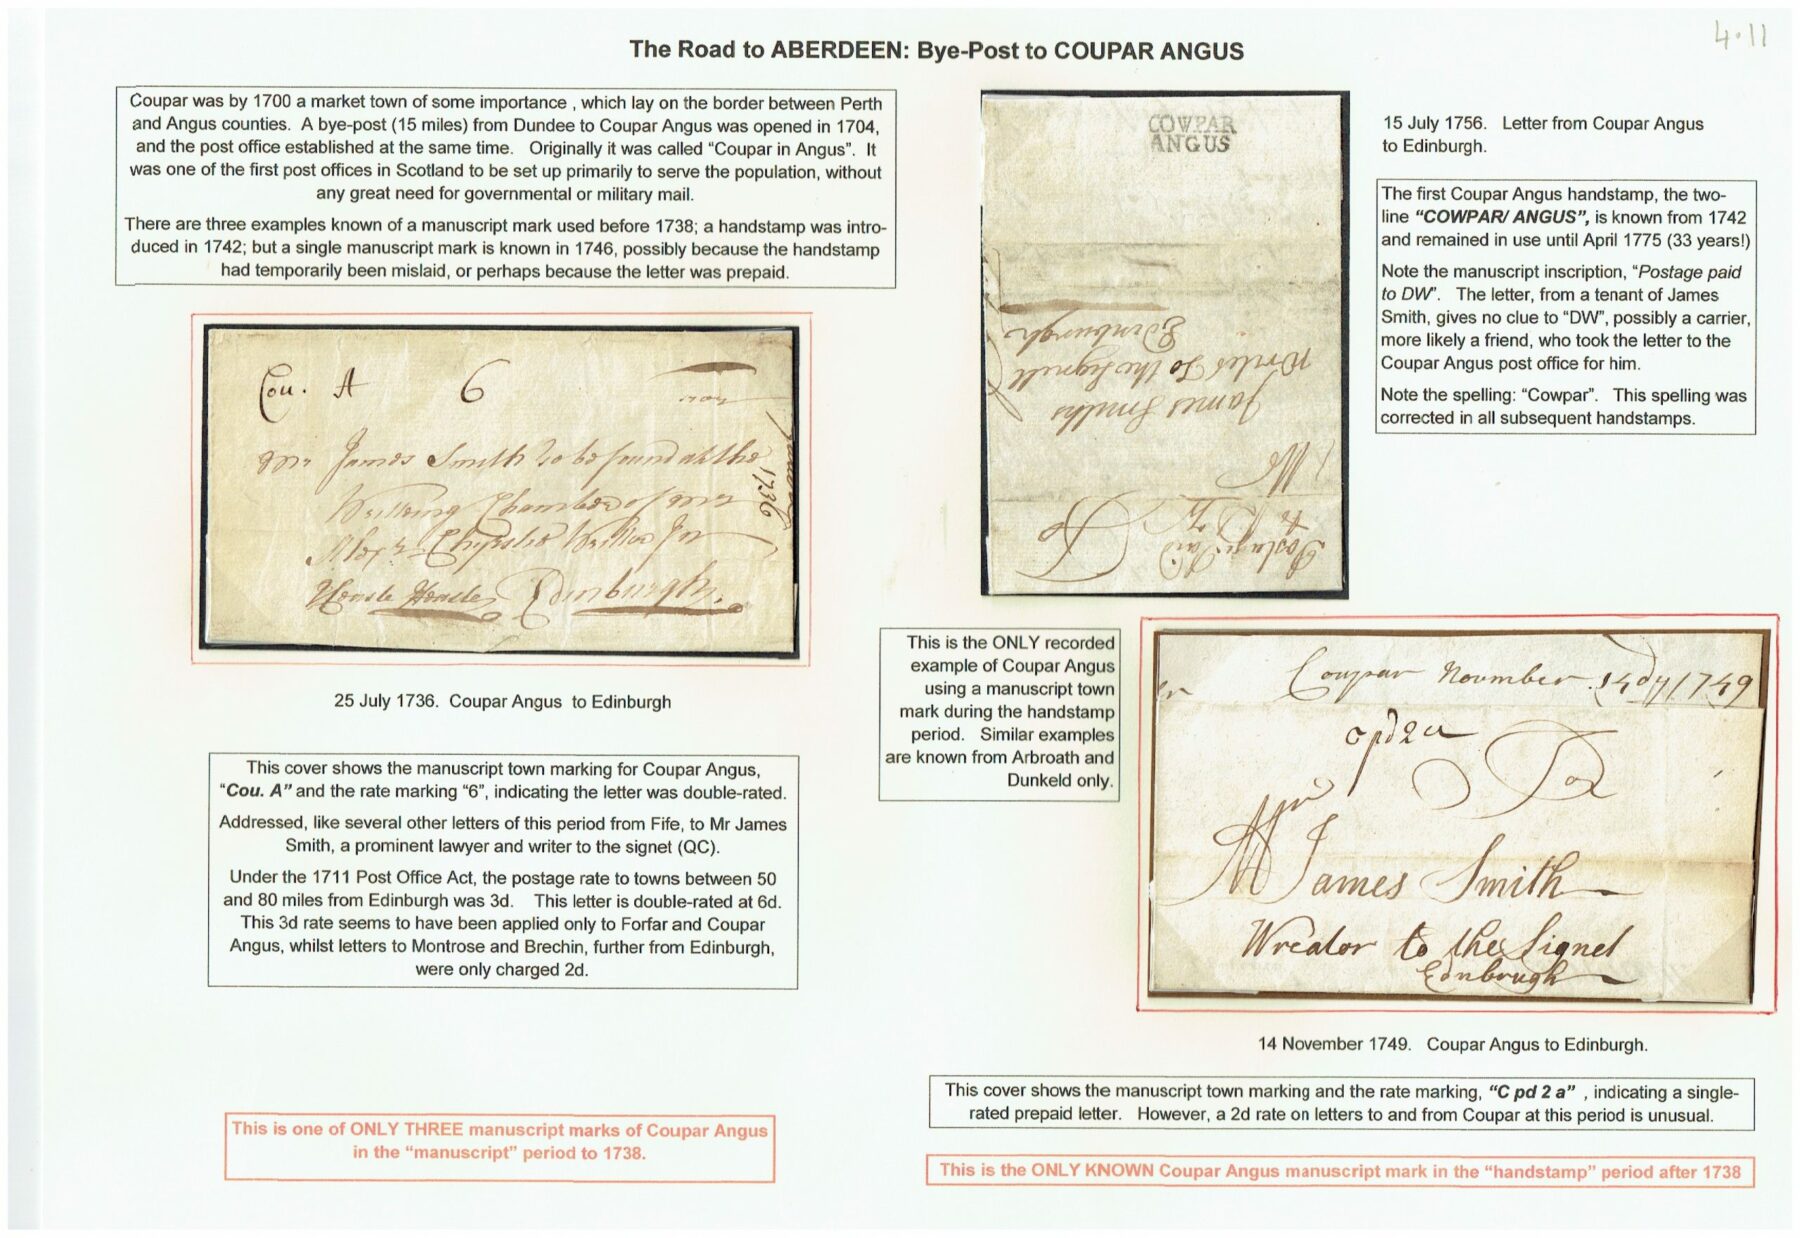 4.11
The Road to ABERDEEN: Bye-Post to COUPAR ANGUS
Coupar was by 1700 a market town of some importance , which lay on the border between Perth
and Angus counties. A bye-post (15 miles) from Dundee to Coupar Angus was opened in 1704,
and the post office established at the same time. Originally it was called “Coupar in Angus”. It
was one of the first post offices in Scotland to be set up primarily to serve the population, without
any great need for governmental or military mail.
There are three examples known of a manuscript mark used before 1738; a handstamp was intro-
duced in 1742; but a single manuscript mark is known in 1746, possibly because the handstamp
had temporarily been mislaid, or perhaps because the letter was prepaid.
Cou. A 6
James Smith to be found at the
Writting Chamber of
Edinburgh
1736
25 July 1736. Coupar Angus to Edinburgh
This cover shows the manuscript town marking for Coupar Angus,
“Cou. A” and the rate marking “6”, indicating the letter was double-rated.
Addressed, like several other letters of this period from Fife, to Mr James
Smith, a prominent lawyer and writer to the signet (QC).
Under the 1711 Post Office Act, the postage rate to towns between 50
and 80 miles from Edinburgh was 3d. This letter is double-rated at 6d.
This 3d rate seems to have been applied only to Forfar and Coupar
Angus, whilst letters to Montrose and Brechin, further from Edinburgh,
were only charged 2d.
This is one of ONLY THREE manuscript marks of Coupar Angus
in the “manuscript” period to 1738.
COWPAR
ANGUS
Postage Paid
to DW
To
Mr
James Smith
Writer To the Signett
Edinburgh
15 July 1756. Letter from Coupar Angus
to Edinburgh.
The first Coupar Angus handstamp, the two-
line “COWPAR/ ANGUS”, is known from 1742
and remained in use until April 1775 (33 years!)
Note the manuscript inscription, “Postage paid
to DW”. The letter, from a tenant of James
Smith, gives no clue to “DW”, possibly a carrier,
more likely a friend, who took the letter to the
Coupar Angus post office for him.
Note the spelling: “Cowpar”. This spelling was
corrected in all subsequent handstamps.
This is the ONLY recorded
example of Coupar Angus
using a manuscript town
mark during the handstamp
period. Similar examples
are known from Arbroath and
Dunkeld only.
Coupar Novmber 14 1749
C pd 2 a
To
Mr James Smith
Wreator to the Signel
Ednbrugh
14 November 1749. Coupar Angus to Edinburgh.
This cover shows the manuscript town marking and the rate marking, “C pd 2 a” , indicating a single-
rated prepaid letter. However, a 2d rate on letters to and from Coupar at this period is unusual.
This is the ONLY KNOWN Coupar Angus manuscript mark in the “handstamp” period after 1738